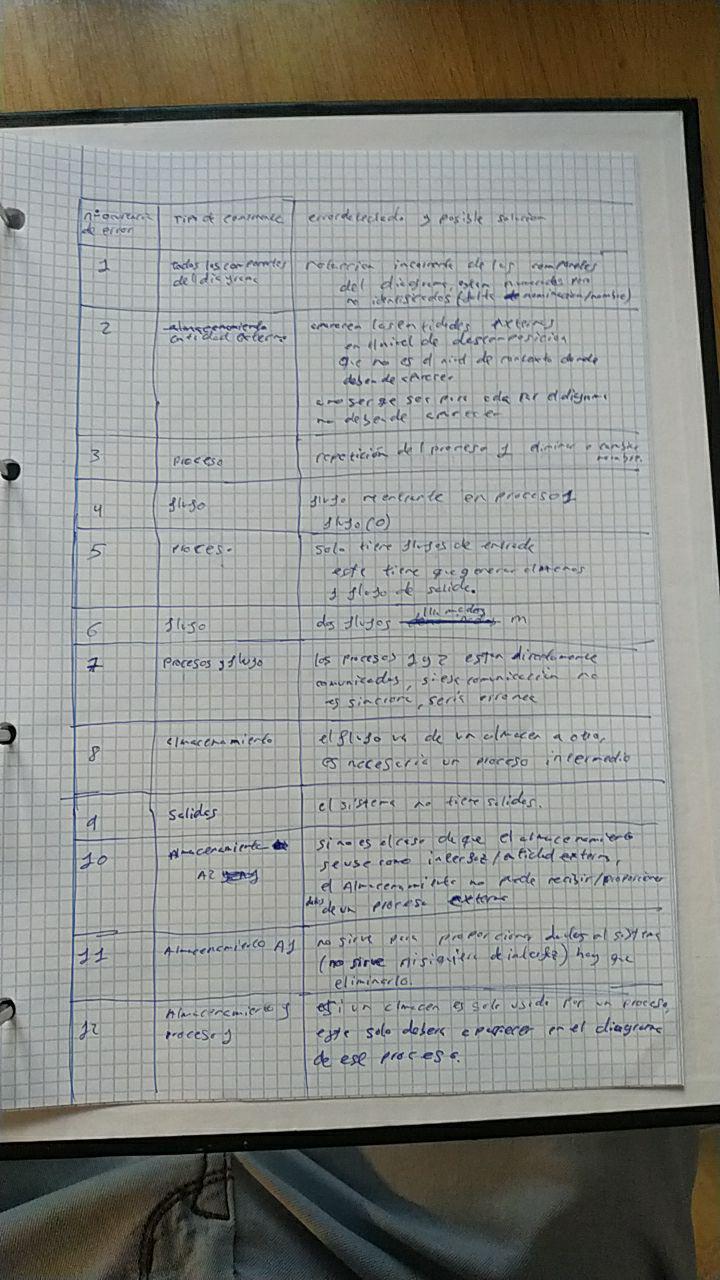 nº ocurrencia de error
tipo de componente
error detectado y posible solución
1
todos los componentes
del diagrama
notacion incorrecta de los componentes
del diagrama, estan numerados pero
no identificados (falta denominacion/nombre)
2
almacenamiento
entidad externa
aparecen las entidades externas
en el nivel de descomposición
que no es el nivel de contexto donde
deben de aparecer
no deben de aparecer
3
proceso
repetición del proceso 1 eliminar o cambiar
nombre.
4
flujo
flujo entrante en proceso 1
flujo (0)
5
proceso
solo tiene flujos de entrada
este tiene que generar al menos
1 flujo de salida.
6
flujo
dos flujos llamados m
7
procesos y flujo
los procesos 1 y 2 estan directamente
comunicados, si esa comunicación no
es sincrona, seria erronea
8
almacenamiento
el flujo va de un almacen a otro,
es necesario un proceso intermedio
9
Salidas
el sistema no tiene salidas.
10
Almacenamiento
A2
si no es el caso de que el almacenamiento
se use como interfaz/entidad externa,
el Almacenamiento no puede recibir/proporcionar
datos de un proceso externo
11
Almacenamiento A1
no sirve para proporcionar datos al sistema
(no sirve ni siquiera de interfaz) hay que
eliminarlo.
12
Almacenamiento y
proceso 1
si un almacen es solo usado por un proceso,
este solo debera aparecer en el diagrama
de ese proceso.